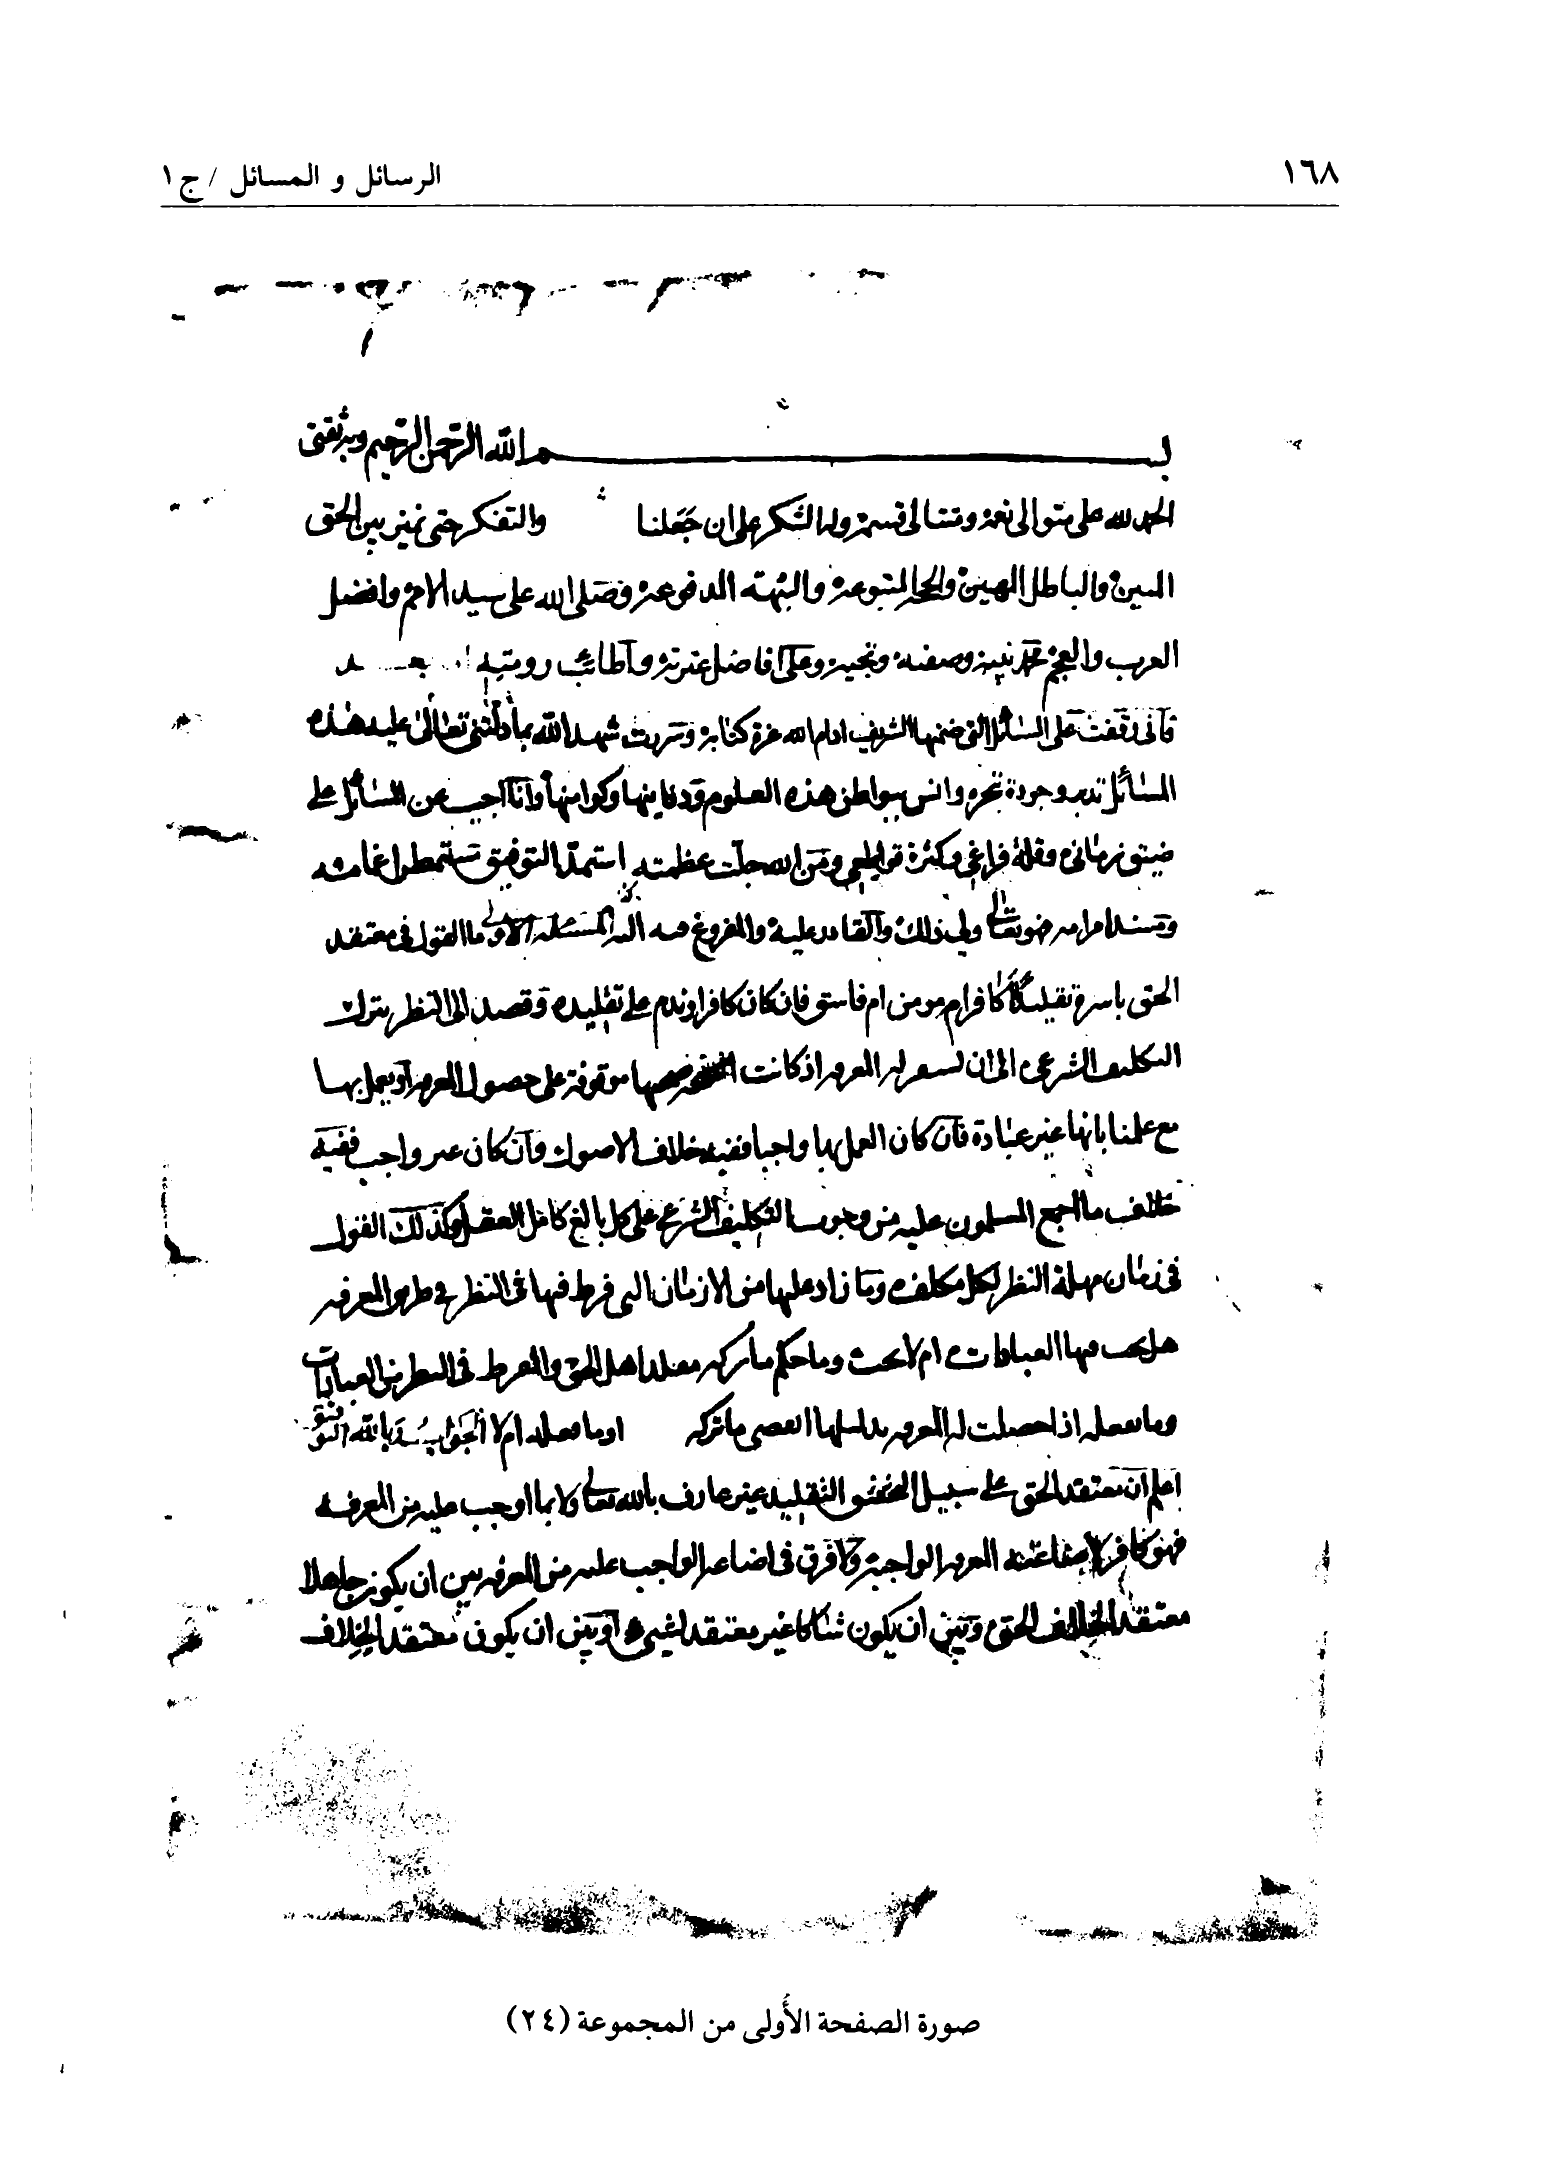 ١٦٨
الرسائل و المسائل / ج ١
بسم الله الرحمن الرحيم وبه ثقتى
الحمد لله على متوالى نعمه ومتتالى قسمه وله الشكر على ان جعلنا والتفكر حتى نميز بين الحق
المبين والباطل المهين والحجة المتبوعة والشبهة المدفوعة وصلى الله على سيد الامم وافضل
العرب والعجم محمد نبيه وصفيه ونجيه وعلى افاضل عترته واطائب
فانى وقفت على المسائل التى ضمنها الشريف ادام الله عزه كتابه وسررت شهد الله بما دلتنى تعالى عليه هذه
المسائل وجودة تبحره وانس ببواطن هذه العلوم ودفاينها وكوامنها وانا اجيب عن المسائل على
ضيق زمانى وقلة فراغى وكثرة قواطعى ومن الله جلت عظمته استمد التوفيق
فهو تعالى ولى ذلك والقادر عليه والمفزوع فيه اليه المسئلة الاولى ما القول فى معتقد
الحق باسره تقليدا كافر ام مومن ام فاسق فان كان كافرا وندم على تقليده وقصد الى النظر بترك
التكليف الشرعى الى ان المعرفة اذ كانت موقوفة على حصول المعرفة او يعمل بها
مع علمنا بانها غير عبادة فان كان العمل بها واجبا ففيه خلاف الاصول وان كان غير واجب ففيه
خلاف ما اجمع المسلمون عليه من وجوب التكليف الشرعى على كل بالغ كامل العقل وكذلك القول
فى زمان مهلة النظر لكل مكلف وما زاد عليها من الازمان التى فرط فيها فى النظر فى طريق المعرفة
هل يجب فيها العبادات ام لا يجب وما حكم ما تركه مقلد اهل الحق والمفرط فى النظر من العبادات
وما يفعله اذا حصلت له المعرفة ما تركه او ما فعله ام لا الجواب بالله التوفيق
اعلم ان معتقد الحق على سبيل التقليد غير عارف بالله تعالى ولا بما اوجب عليه من المعرفة
فهو كافر لاضاعته المعرفة الواجبة ولا فرق فى اضاعة الواجب عليه من المعرفة بين ان يكون جاهلا
معتقدا الحق وبين ان يكون شاكا غير معتقد لشىء او بين ان يكون معتقد الخلاف
صورة الصفحة الأُولى من المجموعة (٢٤)